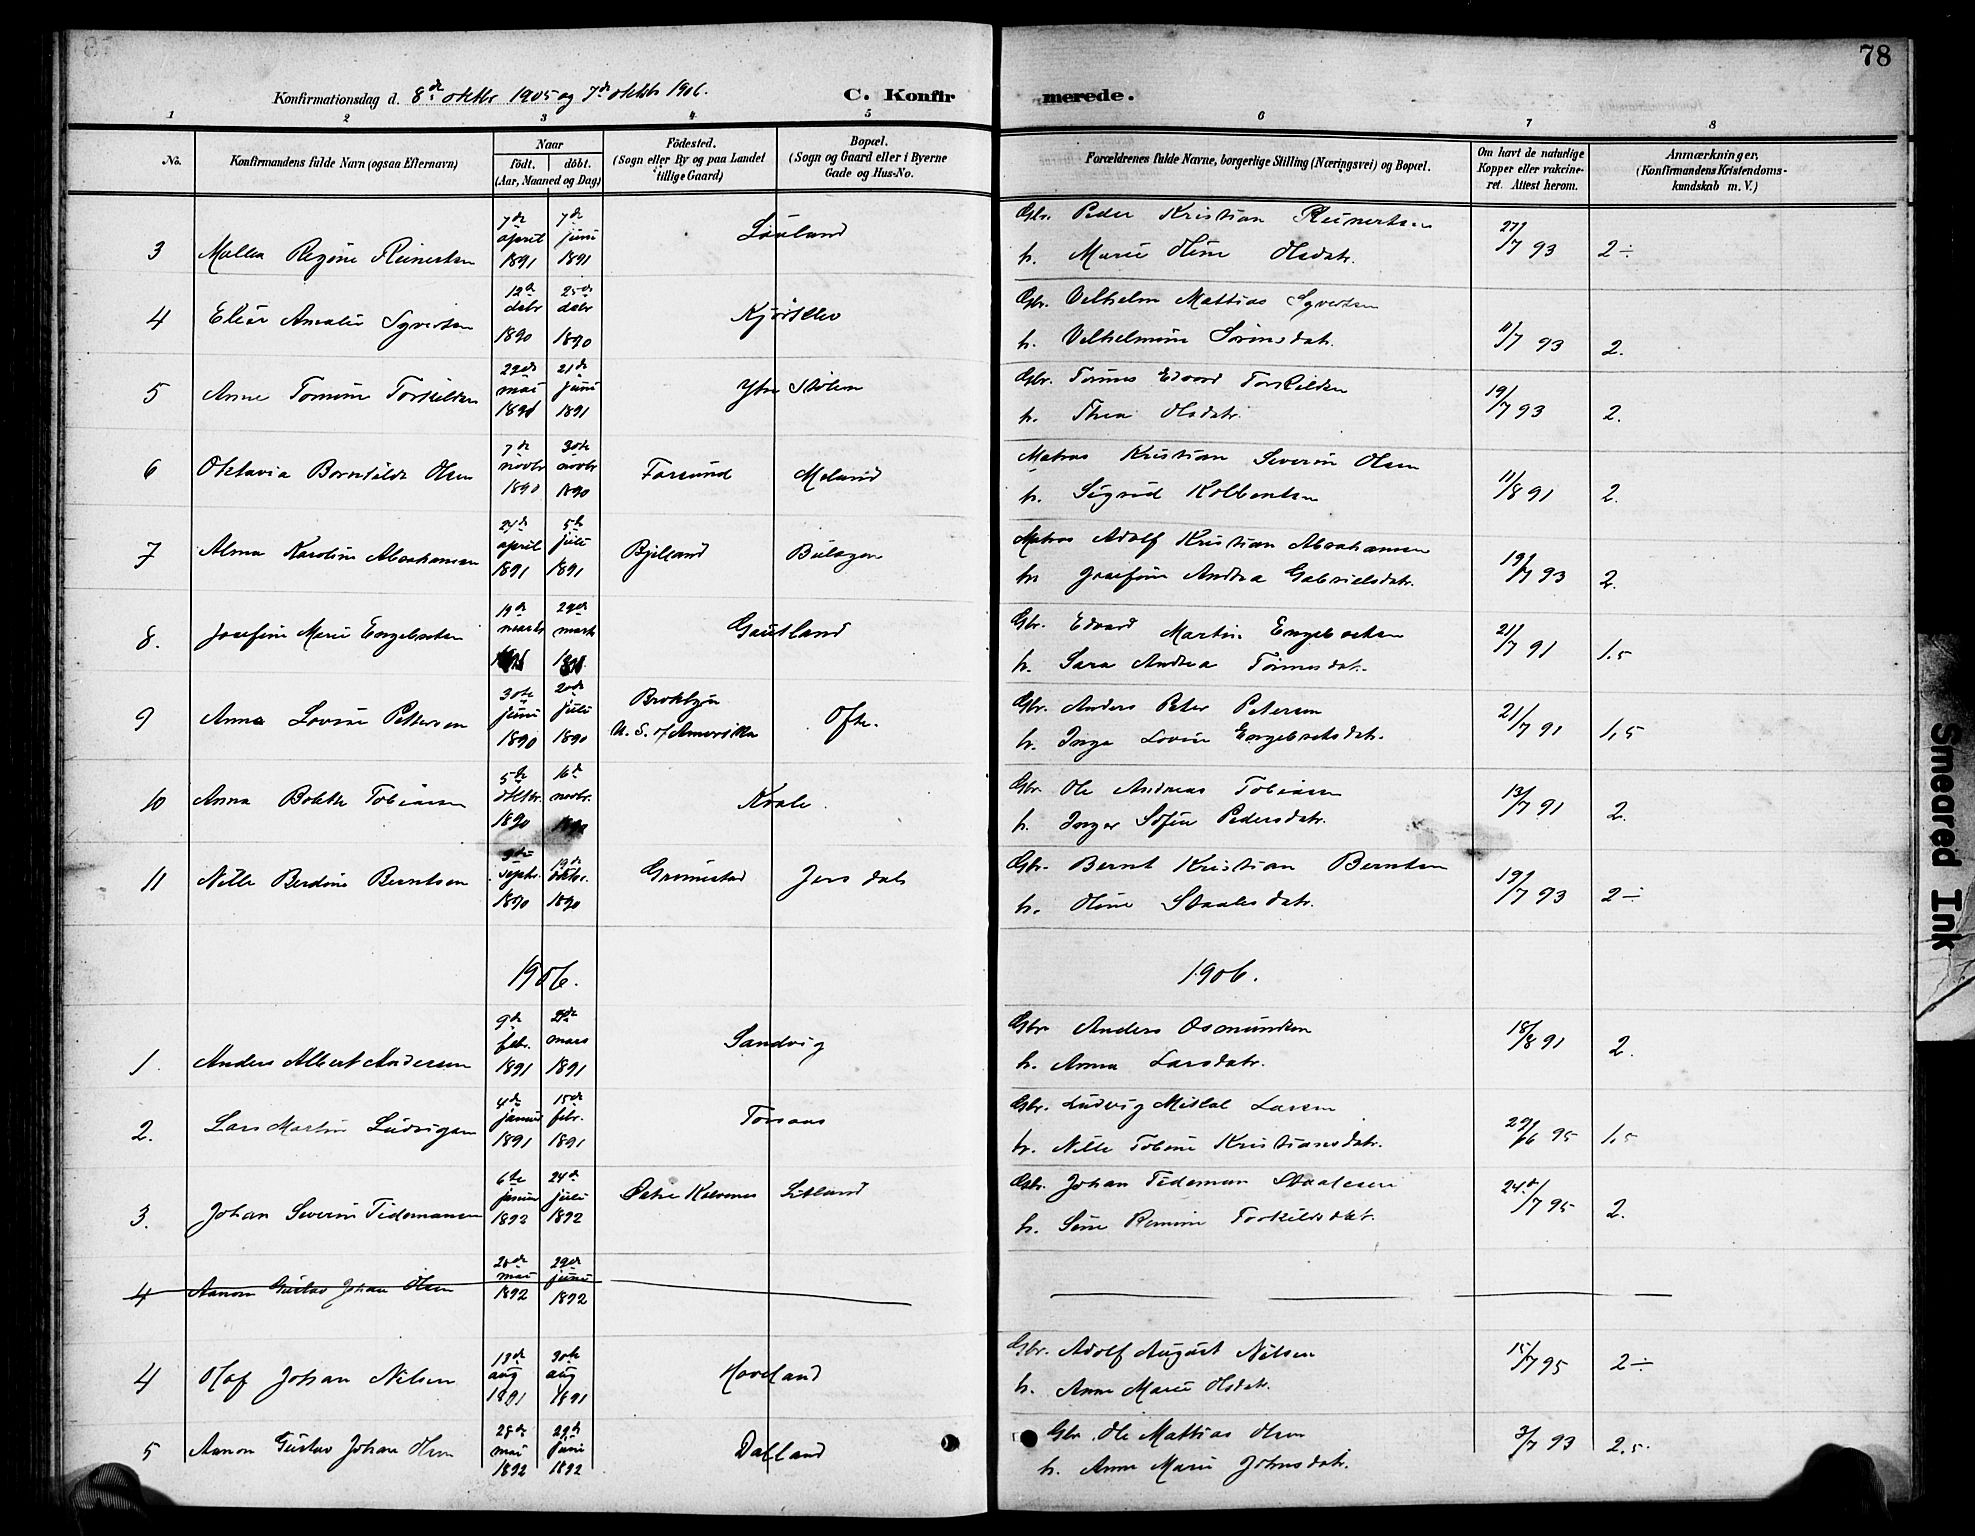 78
Konfirmationsdag d. 8de oktbr 1905 og 7de oktbr 1906. C. Konfirmerede.
1 2 3 4 5 6 7 8
No. Konfirmandens fulde Navn (ogsaa Efternavn) Naar født. døbt. (Aar, Maaned og Dag) Fødested. (Sogn eller By og paa Landet tillige Gaard) Bopæl. (Sogn og Gaard eller i Byerne Gade og Hus-No. Forældrenes fulde Navne, borgerlige Stilling (Næringsvei) og Bopæl. Om havt de naturlige Kopper eller vakcineret. Attest herom. Anmærkninger. (Konfirmandens Kristendomskundskab m. V.)
3 Malla Regine Reinertsen 7de april 1891 7de juni 1891 Gbr. Peder Kristian Reinertsen h. Marie Oline Olsdatr. 27/7 93 2÷
4 Elise Amalie Syvertsen 12te debr 1890 25de debr 1890 Gbr. Velhelm Mattias Syvertsen h. Velhelmine Sørensdatr. 11/7 93 2.
5 Anne Tomine Torkildsen 22de mai 1891 21de juni 1891 Ytre Stølen Gbr. Tønnes Edvard Torkildsen h. Thea Olsdatr. 19/7 93 2.
6 Oktavia Borntilde Olsen 7de novbr 1890 30te novbr 1890 Farsund Meland Matros Kristian Severin Olsen h. Sigrid Kolbentsen 11/8 91 2.
7 Alma Karoline Abrahamsen 24de april 1891 5te juli 1891 Bjelland Matros Adolf Kristian Abrahamsen h. Josefine Andrea Gabrielsdatr. 19/7 93 2.
8. Josefine Marie Engebretsen 19de marts 29de marts Gautland Gbr. Edvard Martin Engebretsen h. Sara Andrea Tønnesdatr. 21/7 91 1.5
9 Anna Lovise Pettersen 30te juni 1890 20de juli 1890 Broklyn U. S. of Amerika Ofte. Gbr. Anders Peter Petersen h. Inga Lovise Engebretsdatr. 21/7 91 1,5
10 Anna Bolette Tobiasen 5te oktbr. 1890 16de novbr. 1890 Kvale. Gbr. Ole Andreas Tobiasen h. Inger Sofie Pedersdatr. 13/7 91 2.
11 Nille Berdine Berntsen 9de septr. 1890 19de oktbr. 1890 Grimestad Jersdal Gbr. Bernt Kristian Berntsen h. Oline Staalesdatr. 19/7 93 2÷
1906. 1906.
1. Anders Albert Andersen 9de febr. 1891 mars 1891 Sandvig Gbr Anders Osmundsen h. Anna Larsdatr. 18/8 91 2.
2. Lars Martin Ludvigsen 4de januar 1891 15de febr. 1891 Torsaas Gbr. Ludvig Mikal Larsen h. Nille Tobine Kristiansdatr. 29/6 95 1,5
3. Johan Severin Tidemansen 6te januar 1892 24de juli 1892 Østre Litland Gbr. Johan Tideman Staalesen h. Sine Torkildsdatr. 24de/7 95 2.
4 Aanon Gustav Johan Olsen 28de mai 1892 29de juni 1892
4 Olaf Johan Nilsen 13de aug 1891 30te aug 1891 Hoveland Gbr. Adolf August Nilsen h. Anne Marie Olsdatr. 15/7 95 2÷
5 Aanon Gustav Johan Olsen 28de mai 1892 29de juni 1892 Dalland Gbr. Ole Mattias Olsen h. Anne Marie Johnsdatr. 3/7 93 2,5.
Smeared Ink